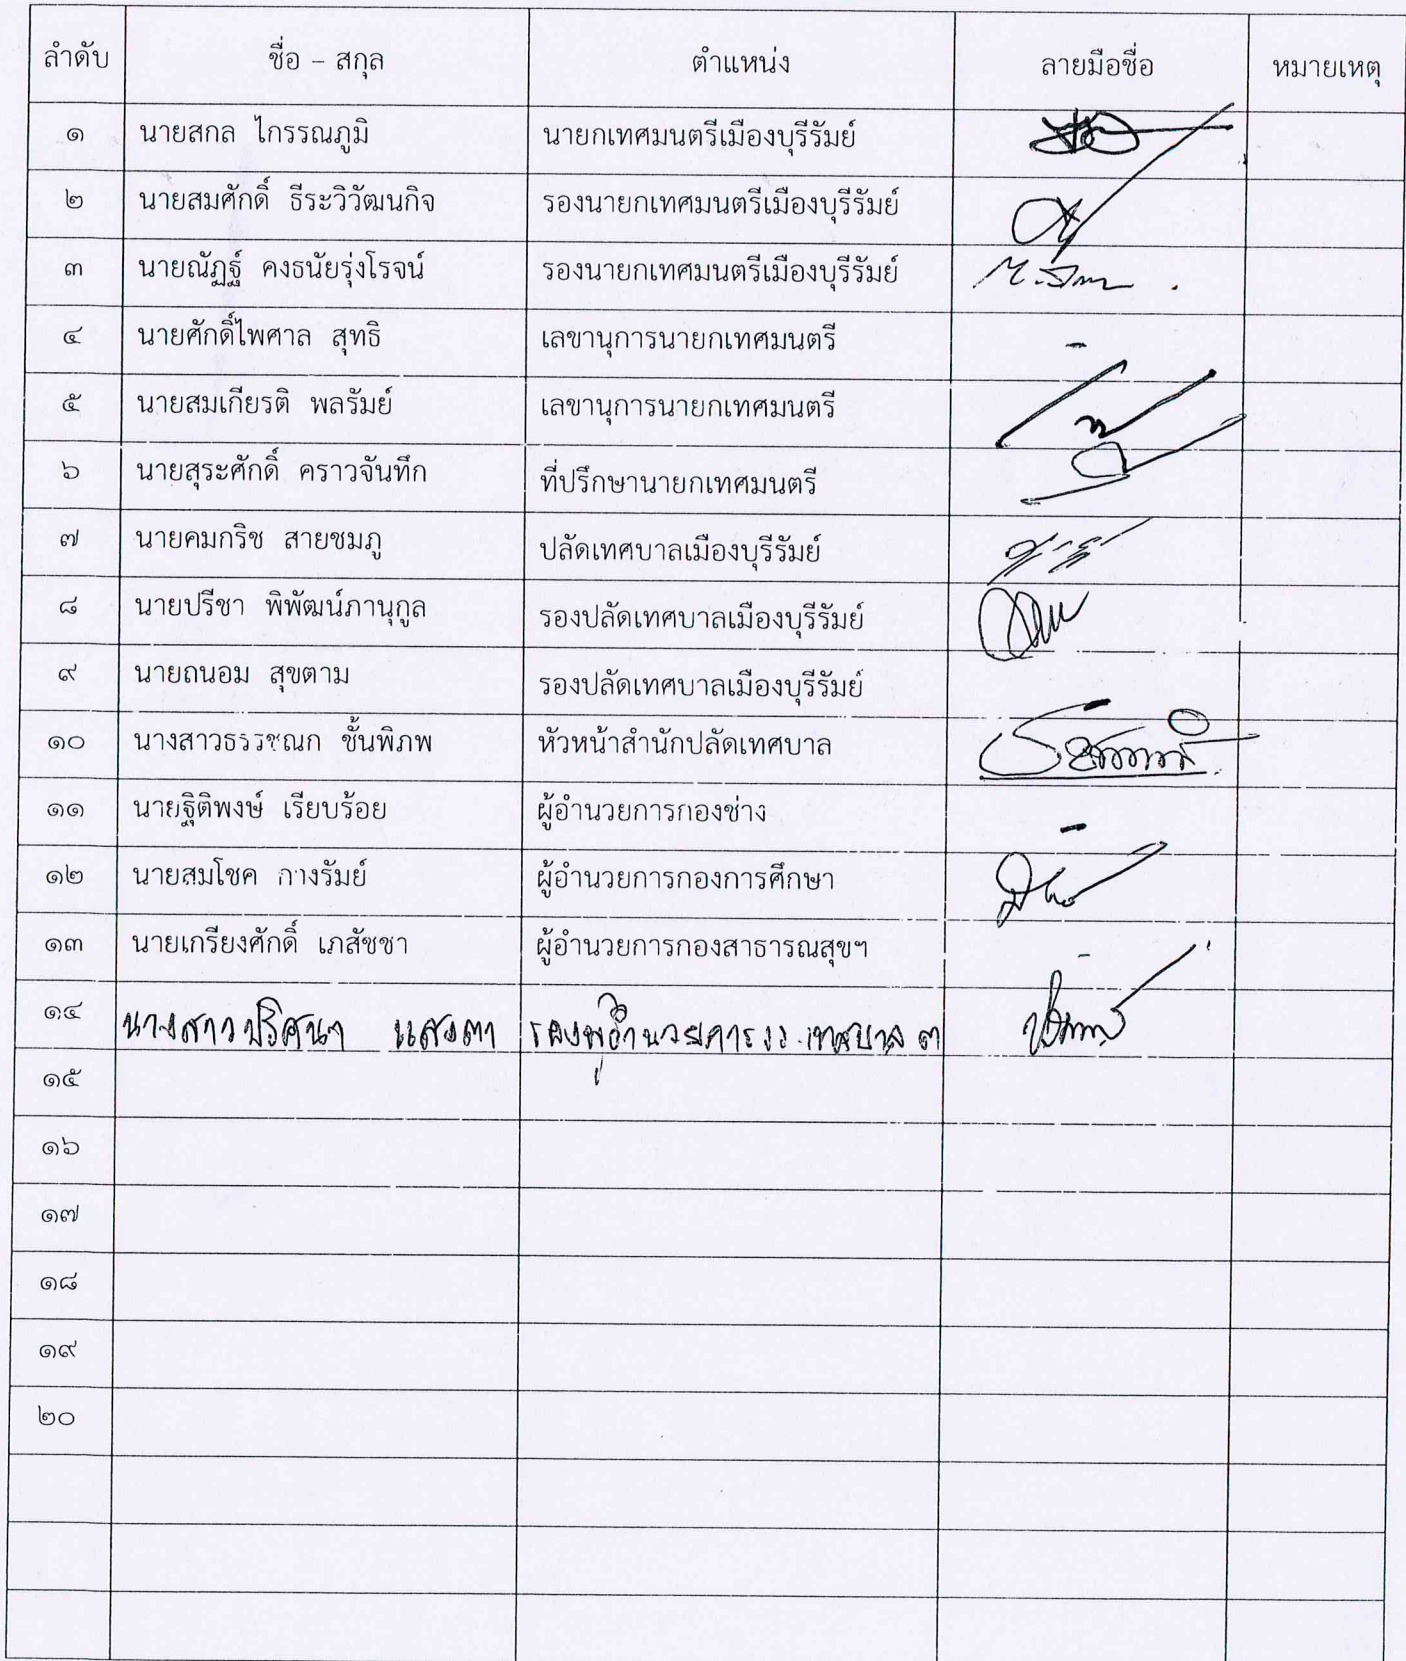 ลำดับ ชื่อ – สกุล ตำแหน่ง ลายมือชื่อ หมายเหตุ
๑ นายสกล ไกรรณภูมิ นายกเทศมนตรีเมืองบุรีรัมย์
๒ นายสมศักดิ์ ธีระวิวัฒนกิจ รองนายกเทศมนตรีเมืองบุรีรัมย์
๓ นายณัฏฐ์ คงธนัยรุ่งโรจน์ รองนายกเทศมนตรีเมืองบุรีรัมย์
๔ นายศักดิ์ไพศาล สุทธิ เลขานุการนายกเทศมนตรี -
๕ นายสมเกียรติ พลรัมย์ เลขานุการนายกเทศมนตรี
๖ นายสุระศักดิ์ คราวจันทึก ที่ปรึกษานายกเทศมนตรี
๗ นายคมกริช สายชมภู ปลัดเทศบาลเมืองบุรีรัมย์
๘ นายปรีชา พิพัฒน์ภานุกูล รองปลัดเทศบาลเมืองบุรีรัมย์
๙ นายถนอม สุขตาม รองปลัดเทศบาลเมืองบุรีรัมย์ -
๑๐ นางสาวธรรชณก ชั้นพิภพ หัวหน้าสำนักปลัดเทศบาล
๑๑ นายฐิติพงษ์ เรียบร้อย ผู้อำนวยการกองช่าง -
๑๒ นายสมโชค กางรัมย์ ผู้อำนวยการกองการศึกษา
๑๓ นายเกรียงศักดิ์ เภสัชชา ผู้อำนวยการกองสาธารณสุขฯ -
๑๔ นางสาวปริศนา แสงตา รองผู้อำนวยการ รร.เทศบาล ๓
๑๕
๑๖
๑๗
๑๘
๑๙
๒๐